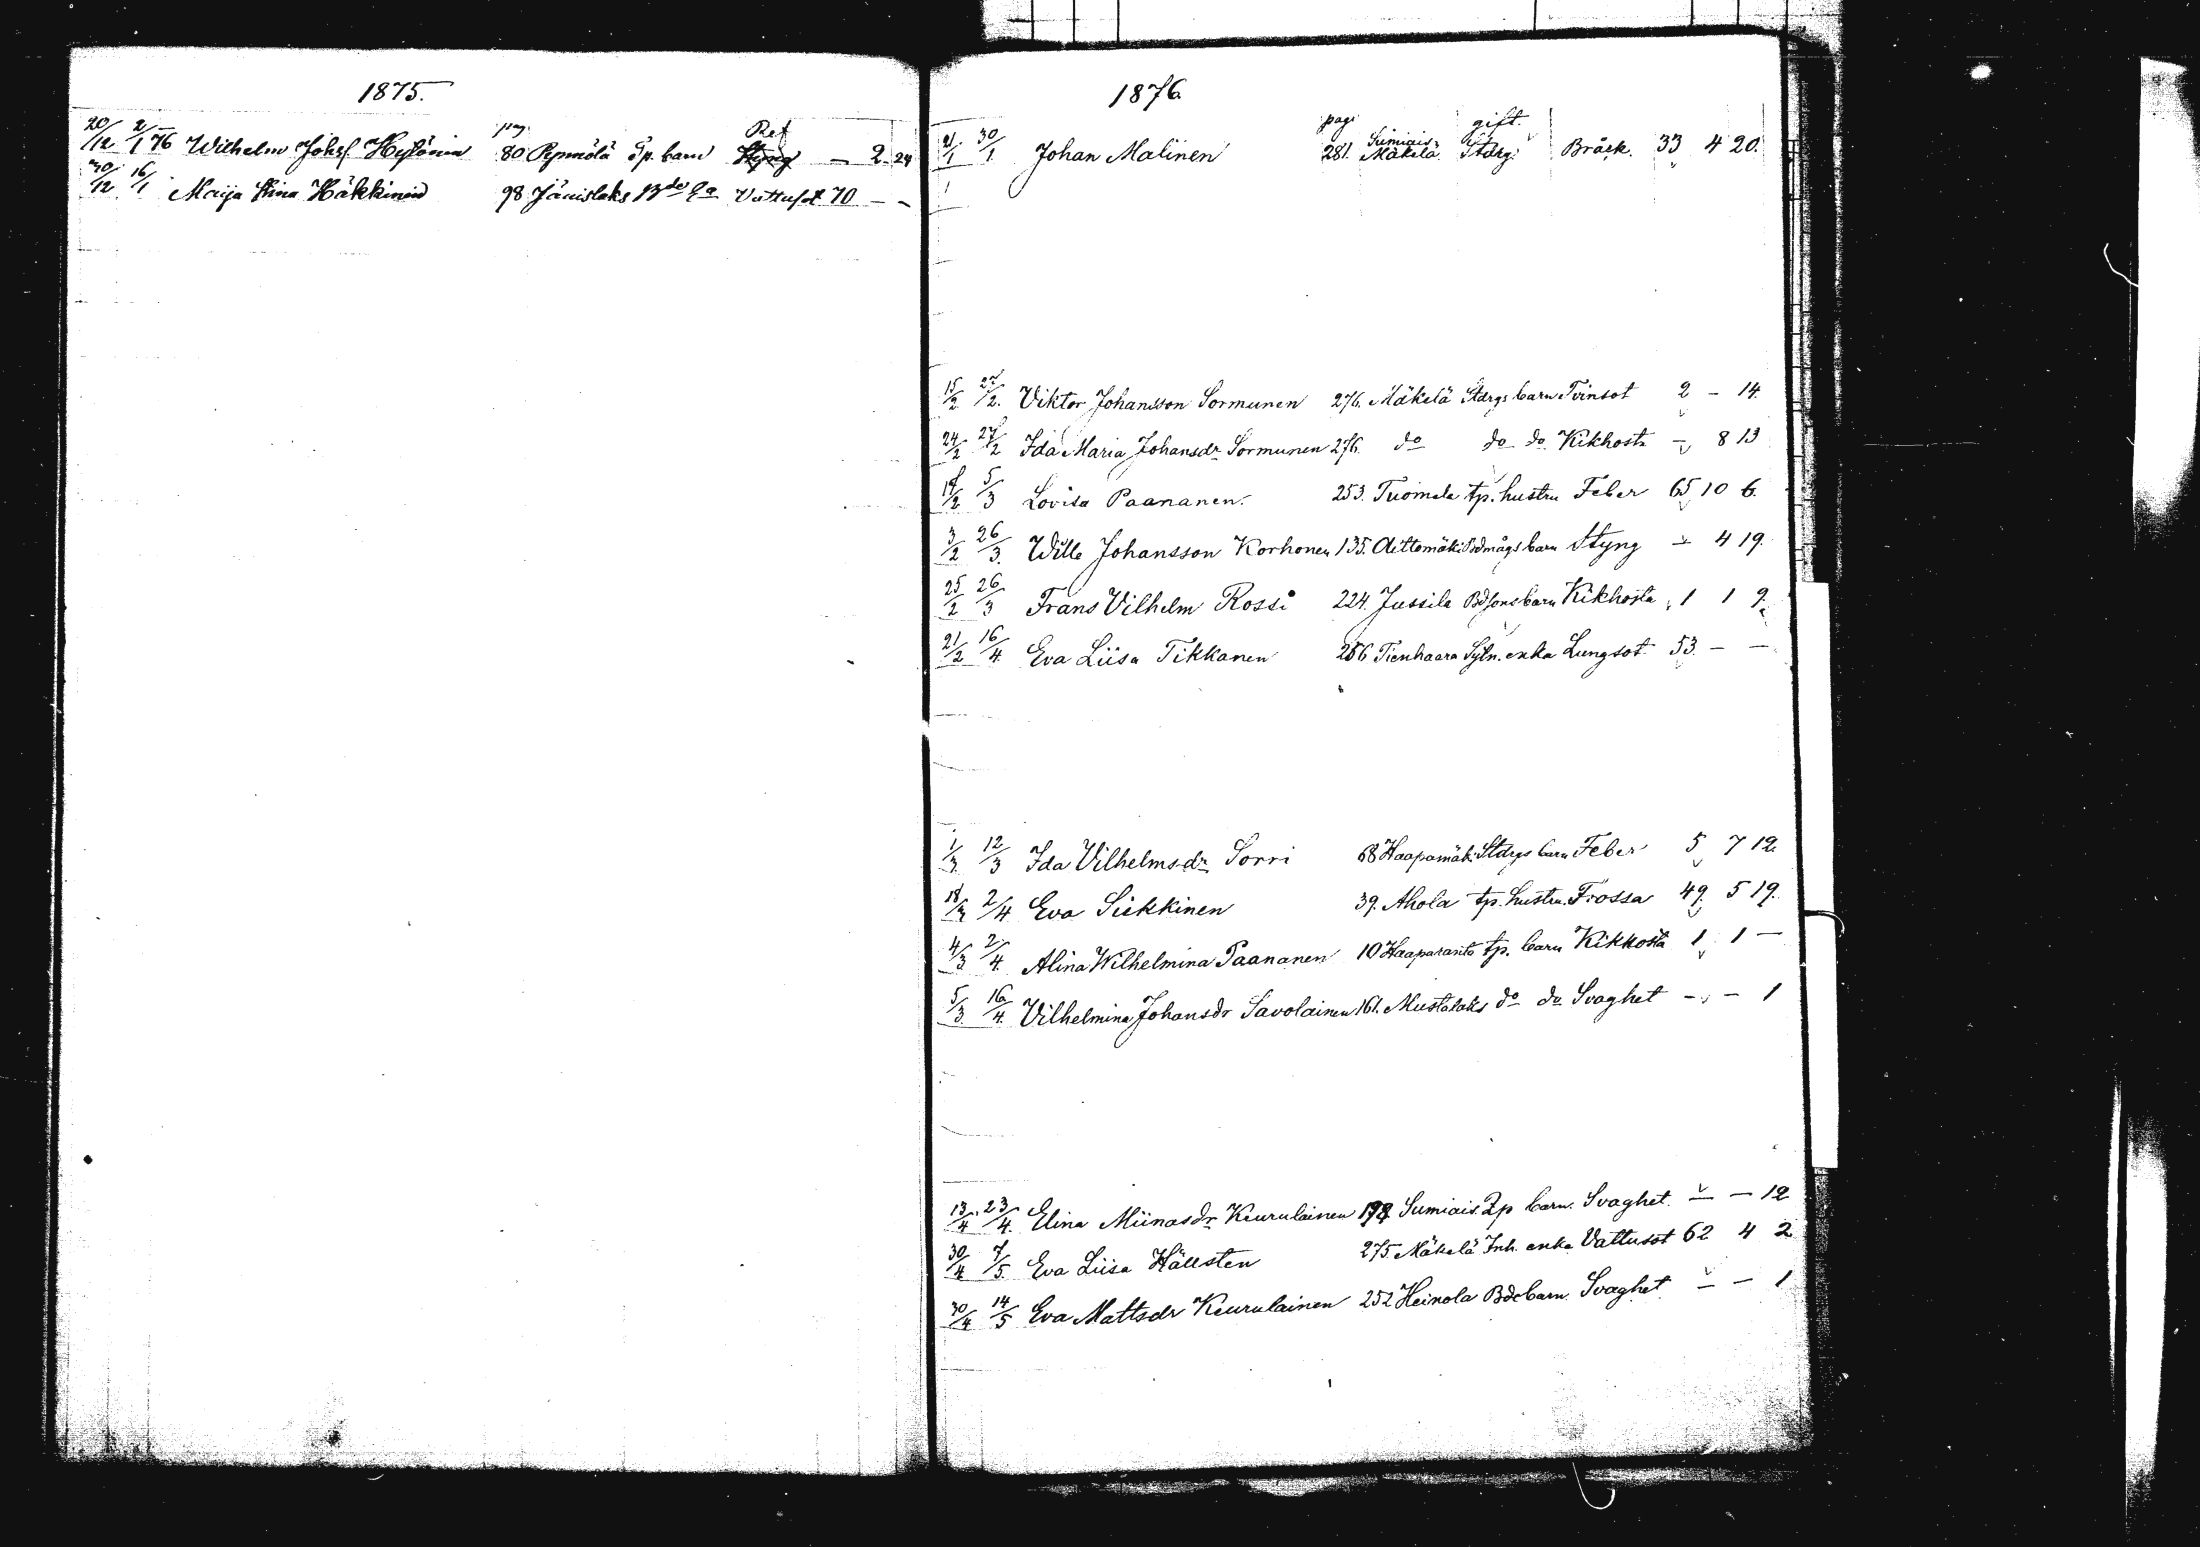 1875.
pag.
20/12 2/1 76 Wilhelm Johsf. Hytönen 80 Pynnölä Tp. barn Ret Styng — 2. 24
30/12 16/1 Maija Stina Häkkinen 98 Jänislaks Bde Ea Vattusot 70 — —
1876.
pag. gift.
2/1 30/1 Johan Malinen 281. Sumiais Mäkelä Stdrg. Bråck. 33 4 20.
15/2 27/2. Viktor Johansson Sormunen 276. Mäkelä Stdrgs barn Tvinsot 2 — 14.
24/2 27/2 Ida Maria Johansdr Sormunen 276. do do do Kikhosta — 8 13
17/2 5/3 Lovisa Paananen. 253. Tuomela tp. hustru Feber 65 10 6.
3/2 26/3. Wille Johansson Korhonen 135. Aittomäki Bdmågs barn Styng — 4 19.
25/2 26/3 Frans Vilhelm Rossi 224. Jussila Bdsons barn Kikhosta 1 1 9.
21/2 16/4. Eva Liisa Tikkanen 256 Tienhaara Sytn. enka Lungsot 53. — —
1/3. 12/3 Ida Vilhelmsdr Sorri 68 Haapamäki Stdrgs barn Feber 5 7 12.
18/3 2/4 Eva Siekkinen 39. Ahola tp. hustru. Frossa 49. 5 19.
4/3 2/4. Alina Wilhelmina Paananen 10 Haaparanta tp. barn Kikhosta 1 1 —
5/3. 16/4. Vilhelmina Johansdr Savolainen 161. Mustalaks do do Svaghet — — 1
13/4 23/4. Elina Miinasdr Keurulainen 198 Sumiais. Lp barn. Svaghet. — — 12
30/4 7/5. Eva Liisa Hällsten 275. Mäkelä Inh. enka Vattusot 62 4 2
30/4 14/5 Eva Mattsdr Keurulainen 252 Heinola Bdebarn. Svaghet — — 1